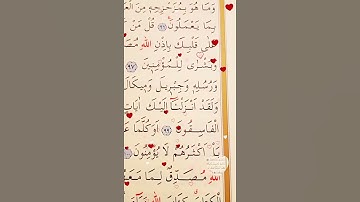 وَمَا هُوَ بِمُزَحْزِحِهٖ مِنَ الْعَ
بِمَا يَعْمَلُونَ ﴿٩٦﴾ قُلْ مَنْ
عَلٰى قَلْبِكَ بِاِذْنِ اللّٰهِ مُصَ
وَبُشْرٰى لِلْمُؤْمِنٖينَ ﴿٩٧﴾
وَرُسُلِهٖ وَجِبْرٖيلَ وَمٖيكَالَ
وَلَقَدْ اَنْزَلْنَٓا اِلَيْكَ اٰيَاتٍ
الْفَاسِقُونَ ﴿٩٩﴾ اَوَكُلَّمَا عَ
بَلْ اَكْثَرُهُمْ لَا يُؤْمِنُونَ
اللّٰهِ مُصَدِّقٌ لِمَا مَعَ
الْكِتَابَ كِتَابَ اللّٰهِ